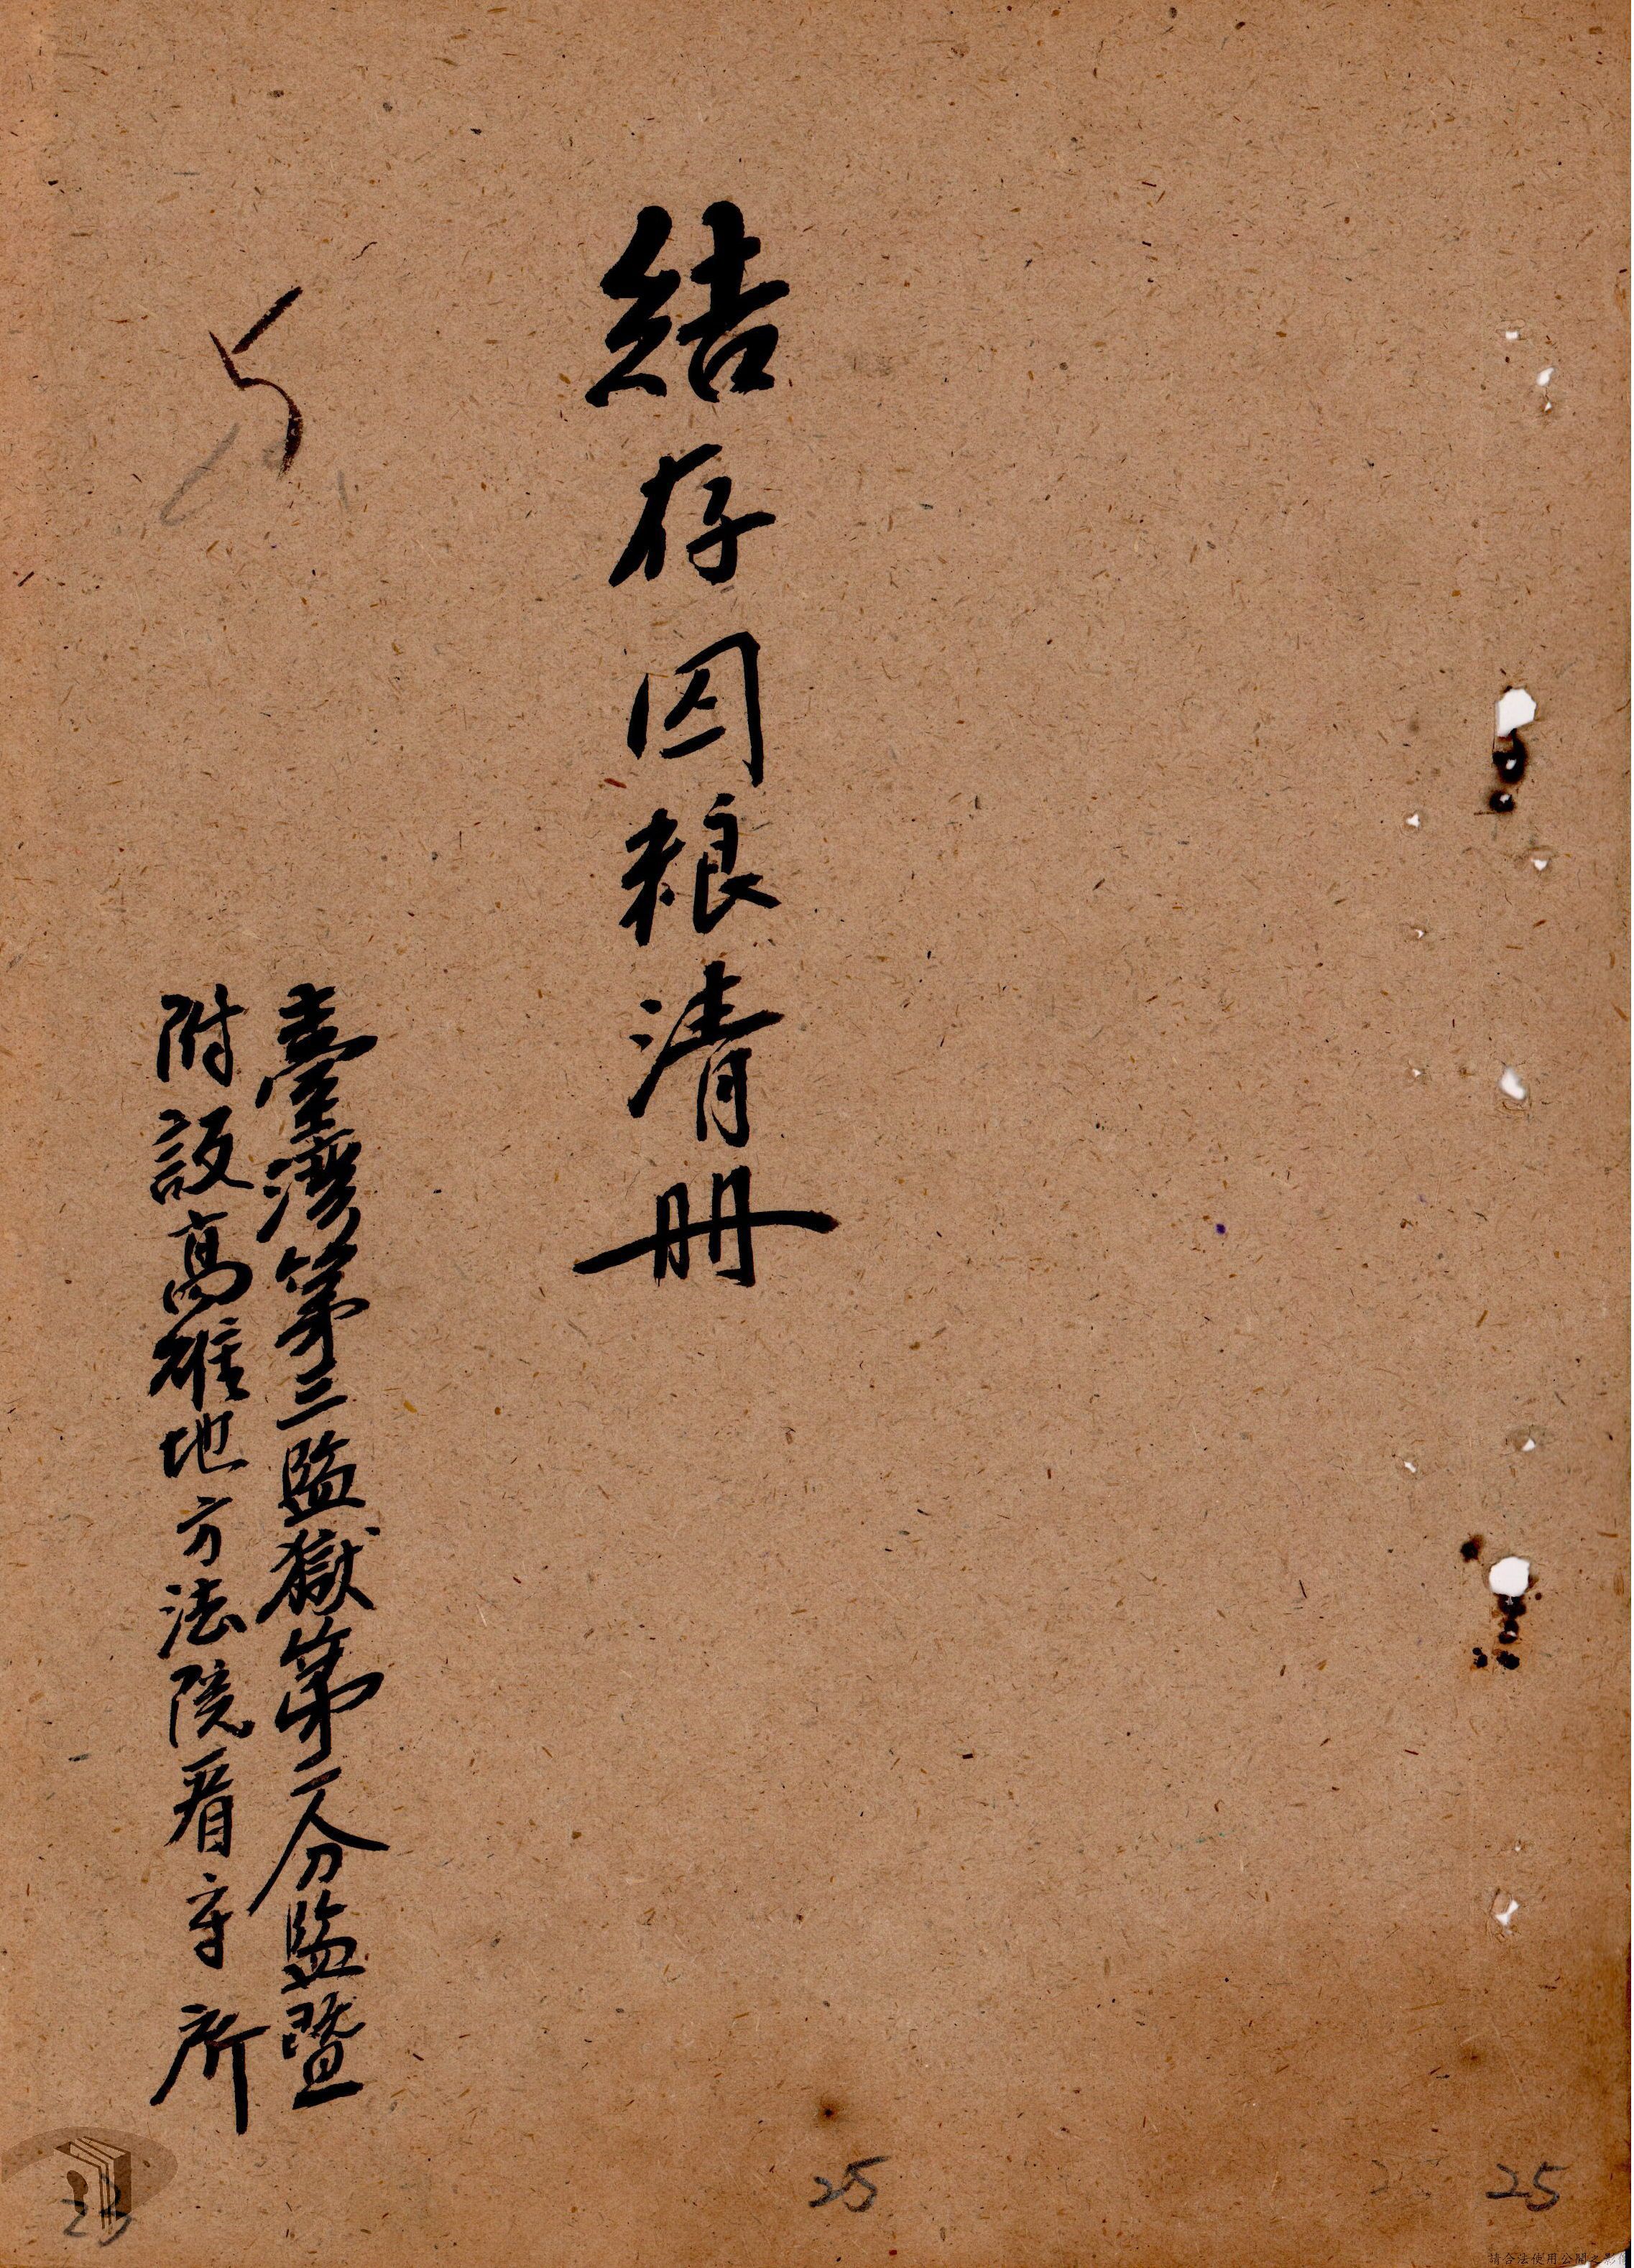 結存囚粮清册
臺灣第三監獄第一分監暨
附設高雄地方法院看守所
5
25
25
23
請合法使用公開之影像